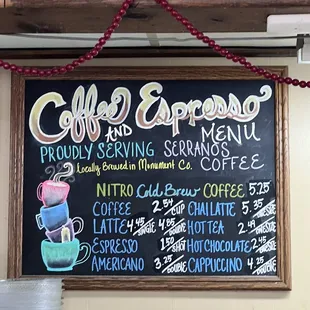 Coffee Espresso
AND MENU
PROUDLY SERVING SERRANOS
Locally Brewed in Monument Co. COFFEE
NITRO Cold Brew COFFEE 5.25
COFFEE 2.54 CUP CHAI LATTE 5.35 SINGLE
LATTE 4.45 SINGLE 4.85 DOUBLE HOT TEA 2.45 SINGLE
ESPRESSO 1.50 SHOT HOT CHOCOLATE 2.45 SINGLE
AMERICANO 3.25 DOUBLE CAPPUCCINO 4.25 DOUBLE